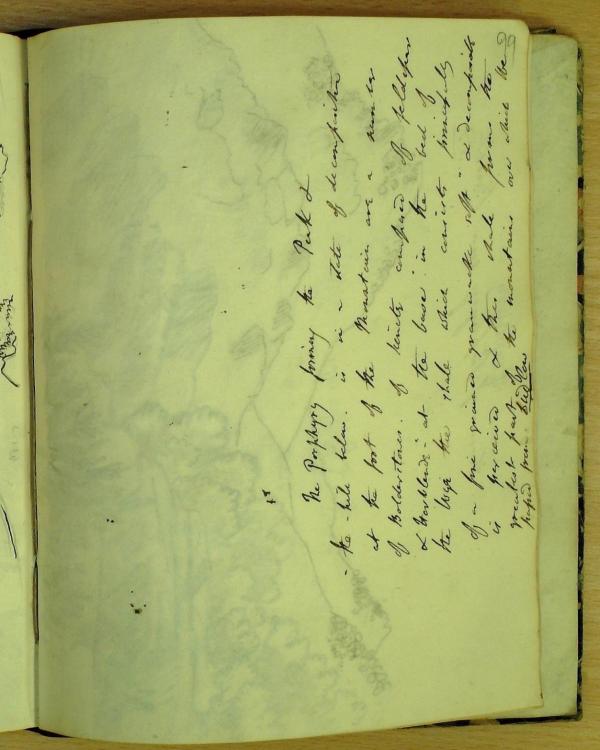 The Porphyry forming the Peak &
the hills below. is in a state of decomposition
at the foot of the Mountain are a number
of Bolderstones. of Sienite composed of feldspar
& Hornblende - at the base in the bed of
the the shale which consists principally
of a fine grained granwakke soft & decomposite
is perceived & this shale forms the
greatest part of the mountains over which we
passed from